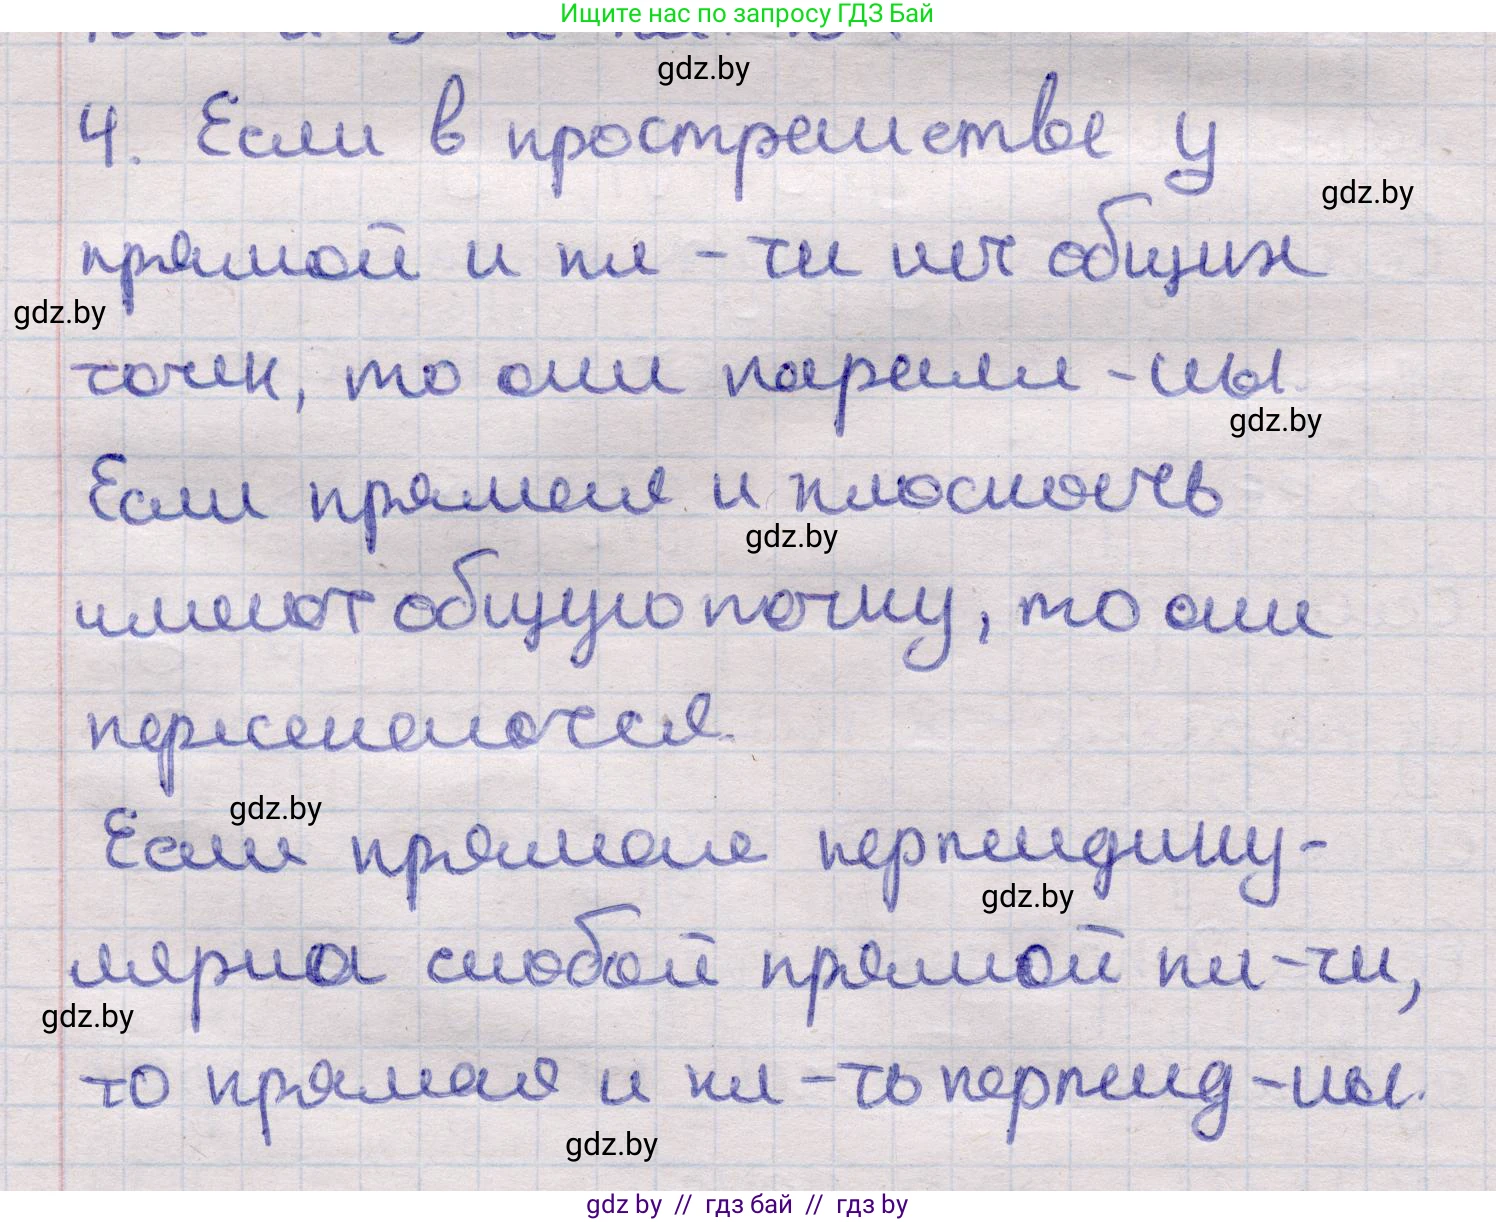 Ищите нас по запросу ГДЗ Бай
gdz.by
4. Если в пространстве у
gdz.by
прямой и пл-ти нет общих
gdz.by
точек, то они паралл-ны.
gdz.by
Если прямая и плоскость
gdz.by
имеют общую точку, то они
пересекаются.
gdz.by
Если прямая перпендику-
gdz.by
лярна любой прямой пл-ти,
gdz.by
то прямая и пл-ть перпенд-ны.
gdz.by
gdz.by // гдз бай // гдз by